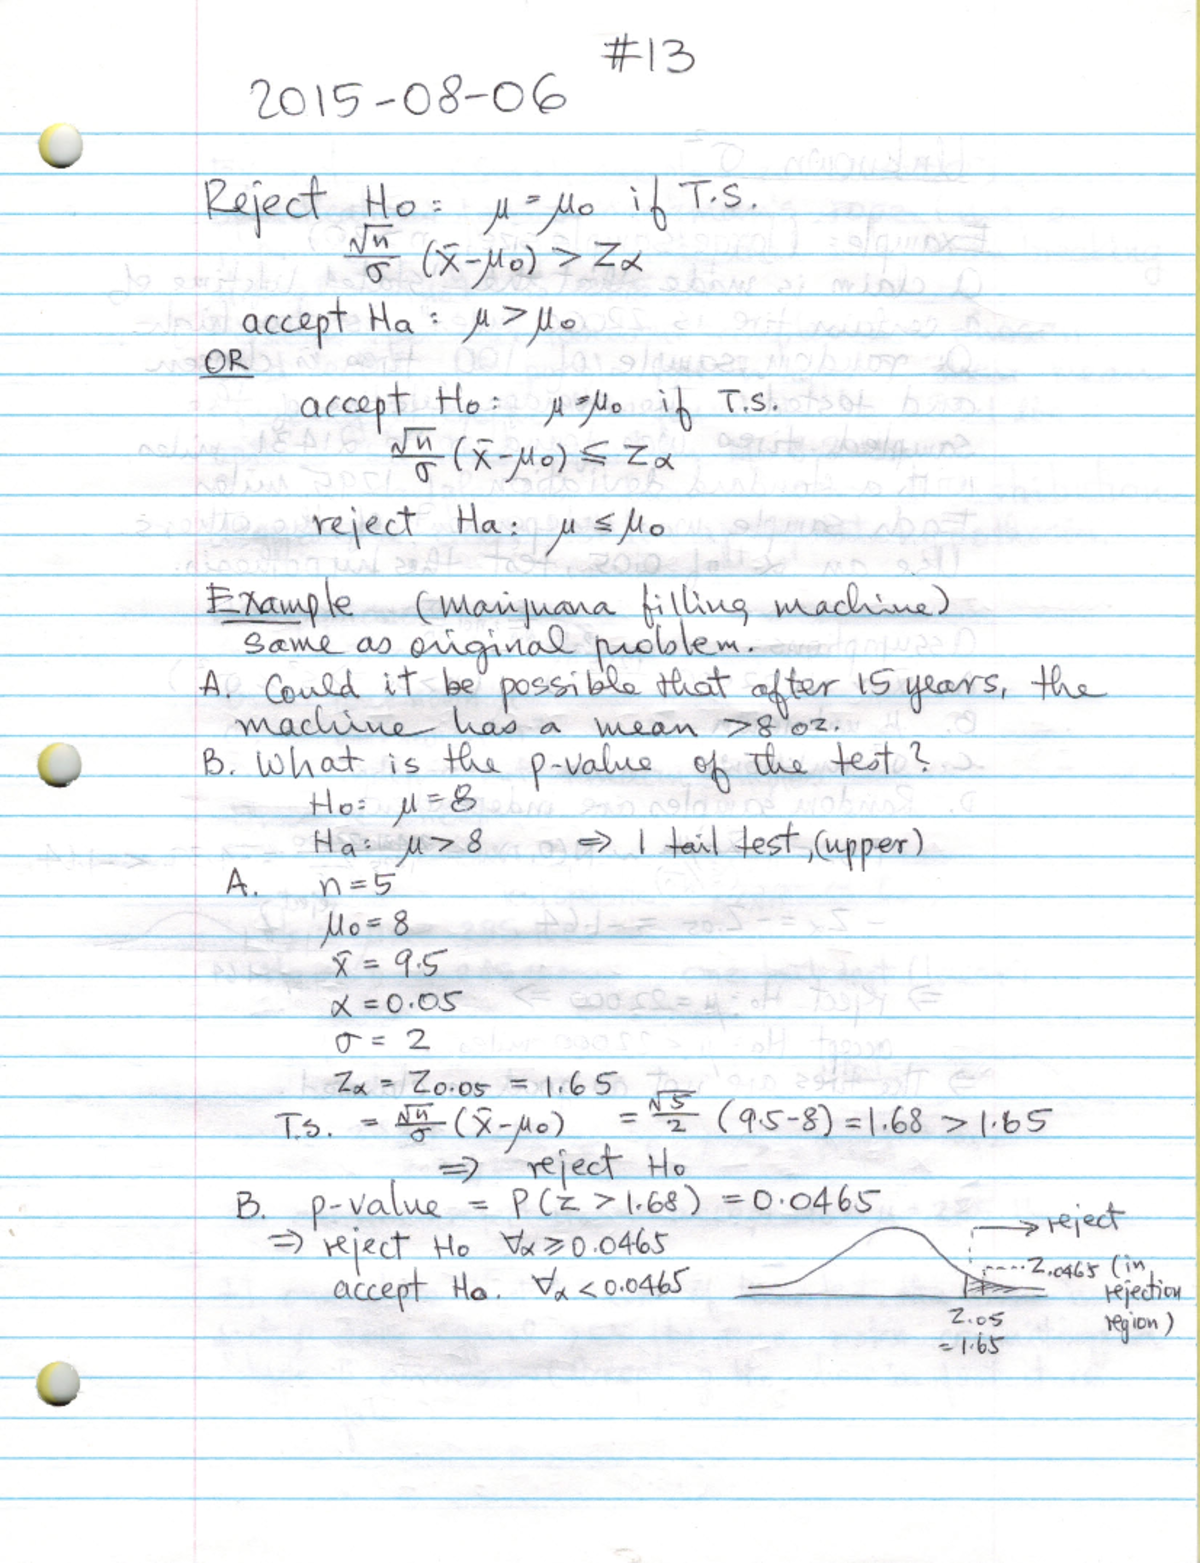 #13
2015-08-06
Reject Ho: μ = μo if T.S.
√n/σ (x̄-μo) > Zα
accept Ha: μ > μo
OR
accept Ho: μ = μo if T.S.
√n/σ (x̄-μo) ≤ Zα
reject Ha: μ ≤ μo
Example (marijuana filling machine)
same as original problem.
A. Could it be possible that after 15 years, the
machine has a mean >8 oz.
B. What is the p-value of the test?
Ho: μ = 8
Ha: μ > 8 ⇒ 1 tail test, (upper)
A. n = 5
μo = 8
x̄ = 9.5
α = 0.05
σ = 2
Zα = Z0.05 = 1.65
T.S. = √n/σ (x̄-μo) = √5/2 (9.5-8) = 1.68 > 1.65
⇒ reject Ho
B. p-value = P(Z > 1.68) = 0.0465
⇒ reject Ho ∀α ≥ 0.0465
accept Ho. ∀α < 0.0465
→ reject
Z.0465 (in rejection region)
Z.05
= 1.65